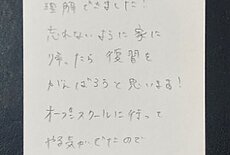 理解できました!
忘れないように家に
帰ったら復習を
がんばろうと思います!
オープンスクールに行って
やる気がでたので